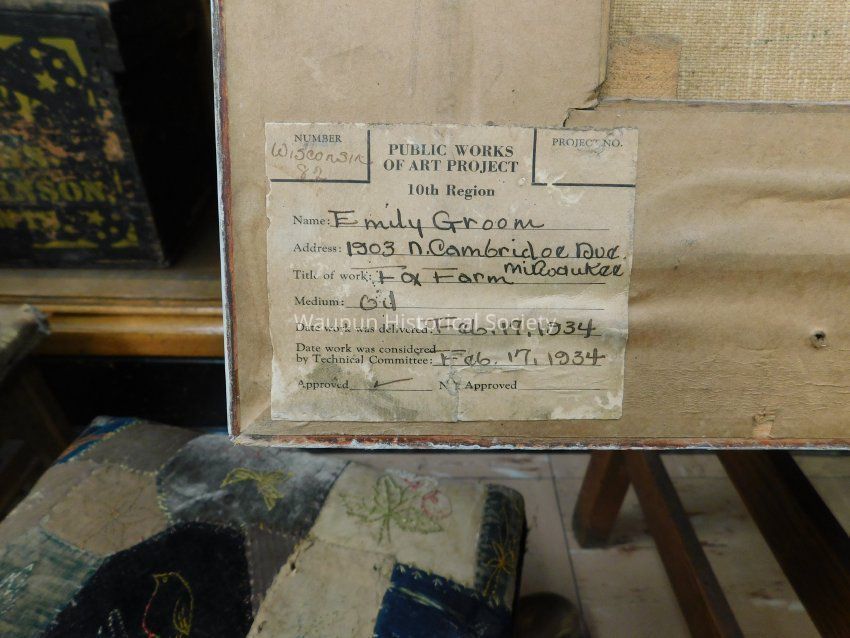 NUMBER
Wisconsin
82
PUBLIC WORKS
OF ART PROJECT
10th Region
PROJECT NO.
Name: Emily Groom
Address: 1903 N. Cambridge Ave.
Milwaukee
Title of work: Fox Farm
Medium: Oil
Waupun Historical Society
Date work was delivered: Feb. 17, 1934
Date work was considered
by Technical Committee: Feb. 17, 1934
Approved ✓ Not Approved